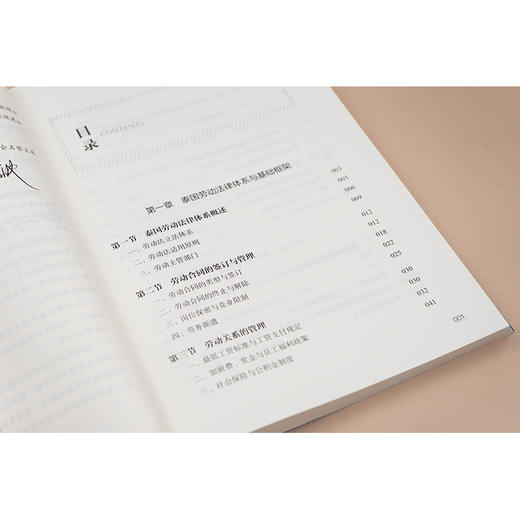 目
录
CONTENTS
第一章 泰国劳动法律体系与基础框架
第一节 泰国劳动法律体系概述 003
一、劳动法立法体系 003
二、劳动法适用原则 006
三、劳动主管部门 009
第二节 劳动合同的签订与管理 012
一、劳动合同的类型与签订 012
二、劳动合同的终止与解除 018
三、岗位保密与竞业限制 022
四、劳务派遣 025
第三节 劳动关系的管理 030
一、最低工资标准与工资支付规定 030
二、加班费、奖金与员工福利政策 032
三、社会保险与公积金制度 041
001